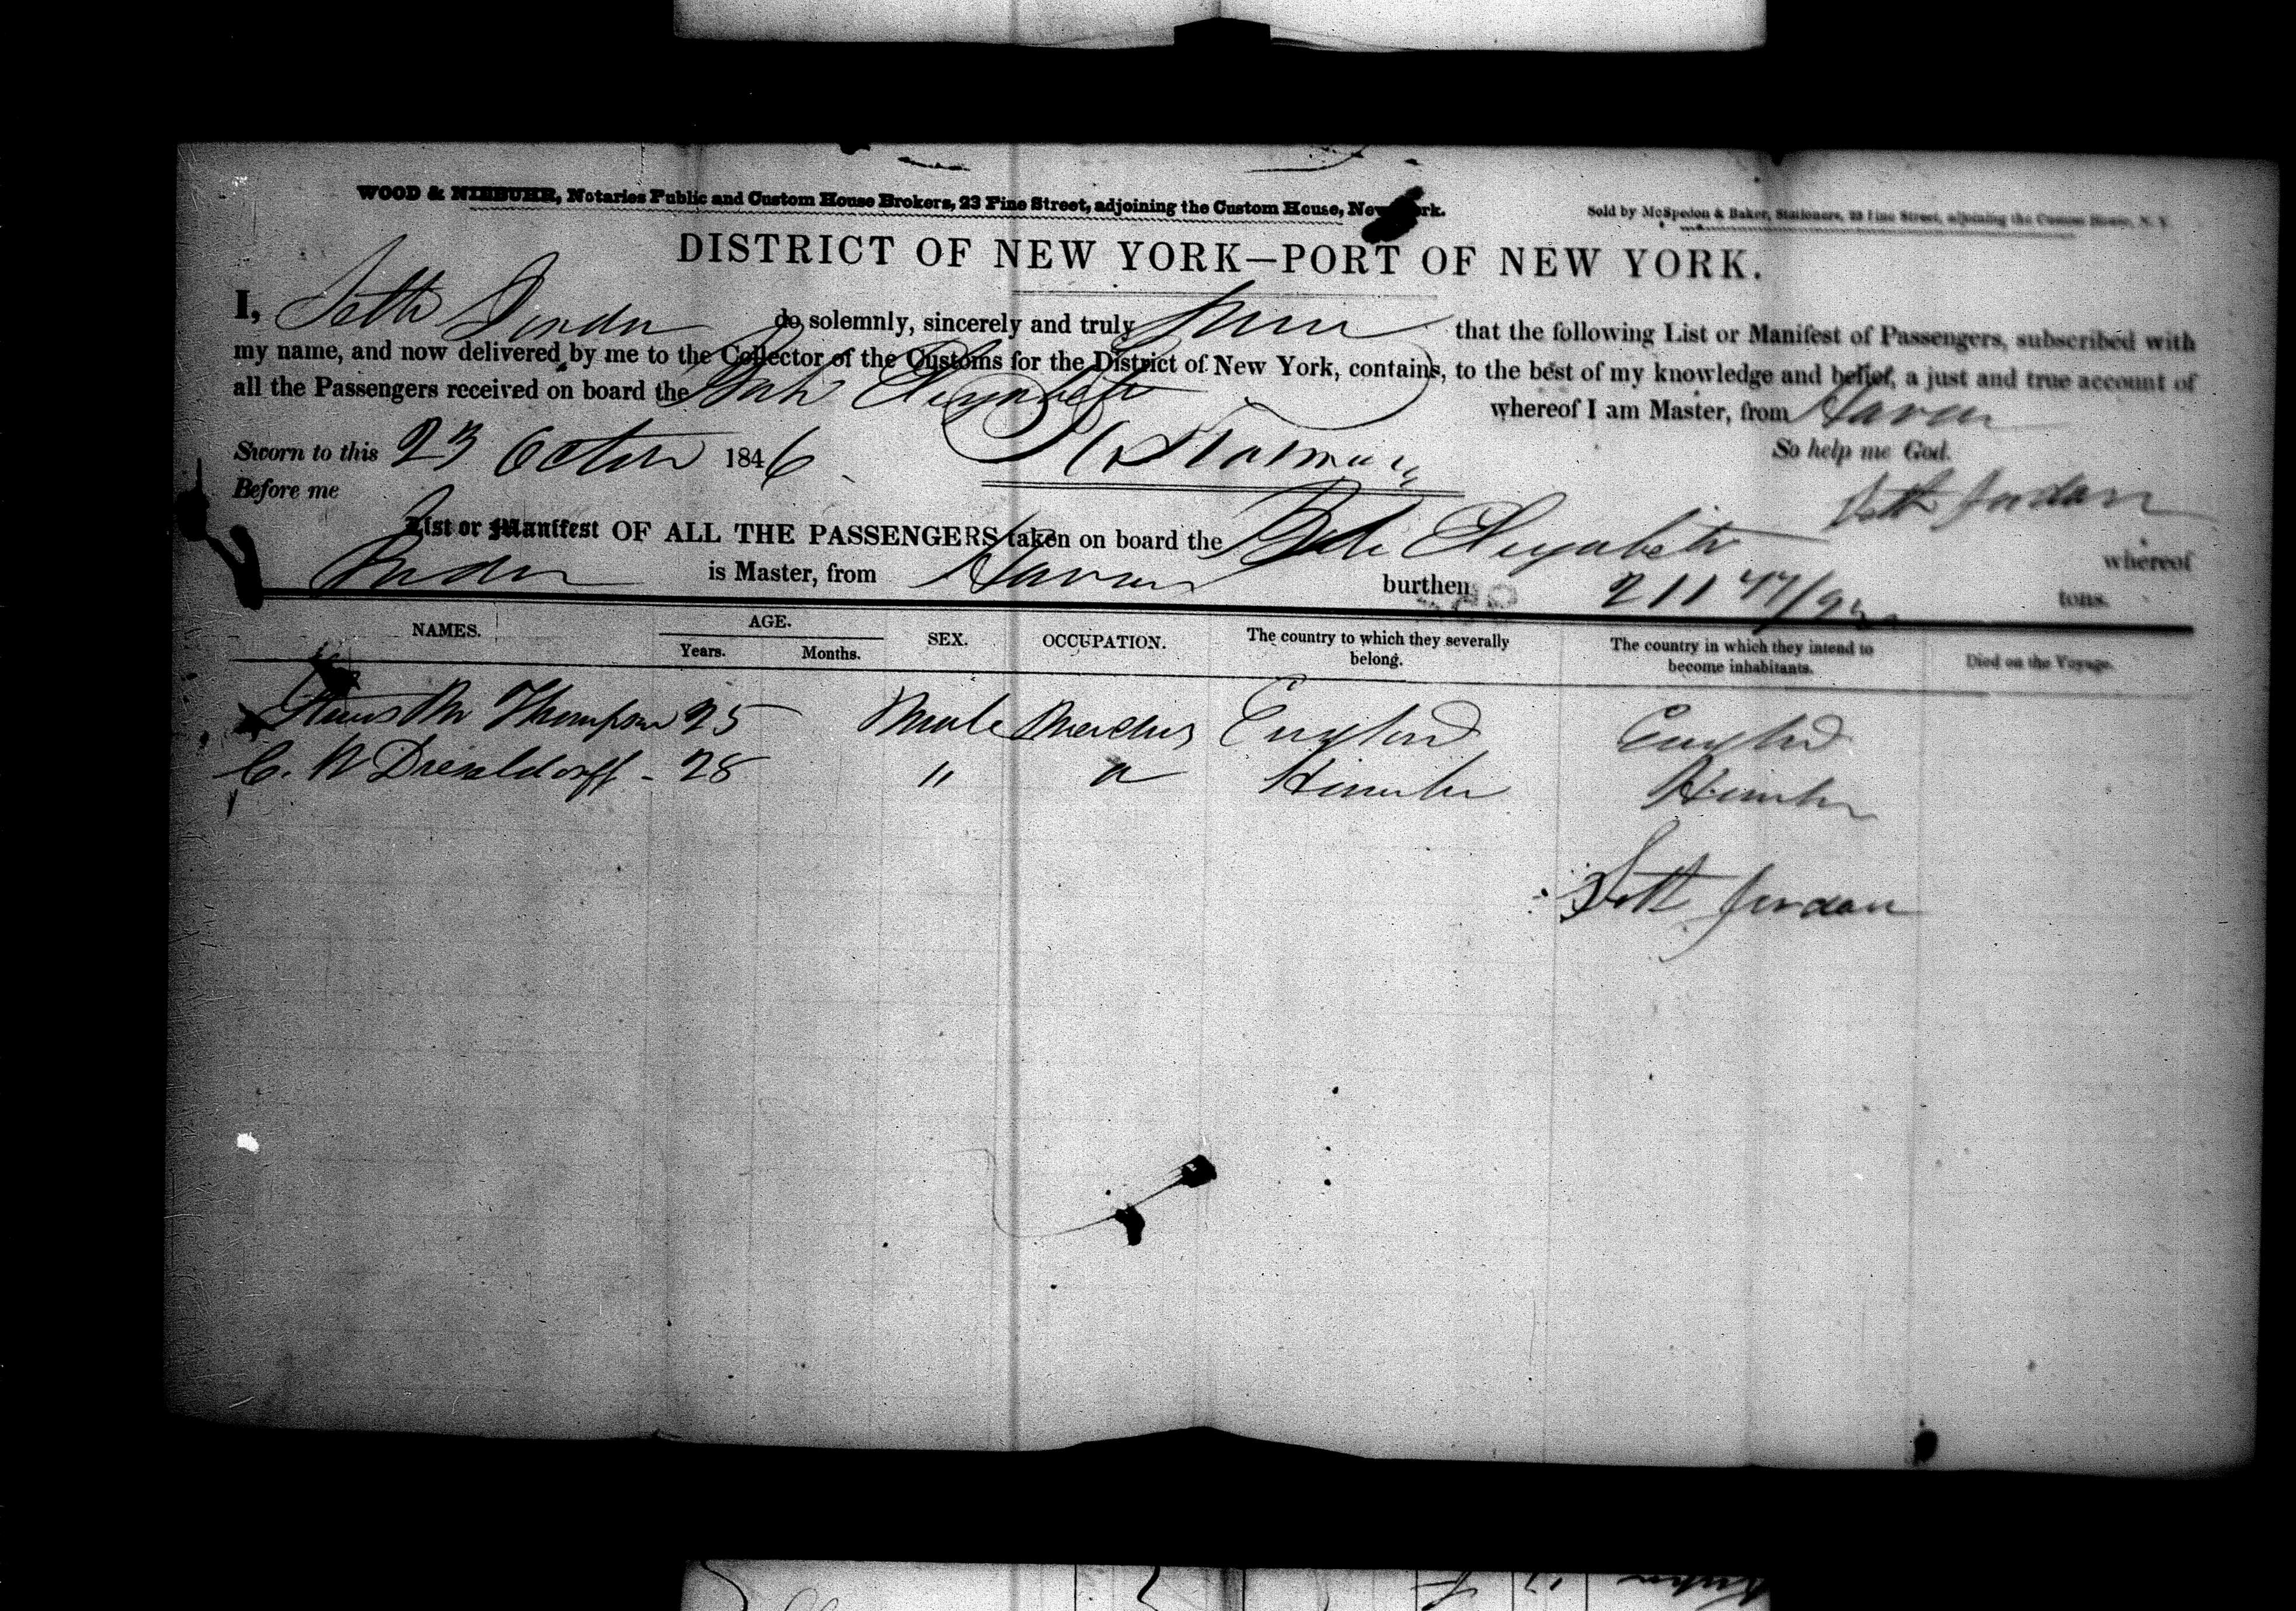 WOOD & NIEBUHR, Notaries Public and Custom House Brokers, 23 Pine Street, adjoining the Custom House, New York.
Sold by McSpedon & Baker, Stationers, 23 Pine Street, adjoining the Custom House, N. Y.
DISTRICT OF NEW YORK—PORT OF NEW YORK.
I, Seth Jordan do solemnly, sincerely and truly swear that the following List or Manifest of Passengers, subscribed with
my name, and now delivered by me to the Collector of the Customs for the District of New York, contains, to the best of my knowledge and belief, a just and true account of
all the Passengers received on board the Elizabeth whereof I am Master, from Havana
Sworn to this 23 October 1846 So help me God.
Before me Seth Jordan
List or Manifest OF ALL THE PASSENGERS taken on board the Elizabeth whereof
Jordan is Master, from Havana burthen 211 47/95 tons.
NAMES. AGE. SEX. OCCUPATION. The country to which they severally belong. The country in which they intend to become inhabitants. Died on the Voyage.
Years. Months.
Thompson 25 Male England England
C. 28 "
Seth Jordan